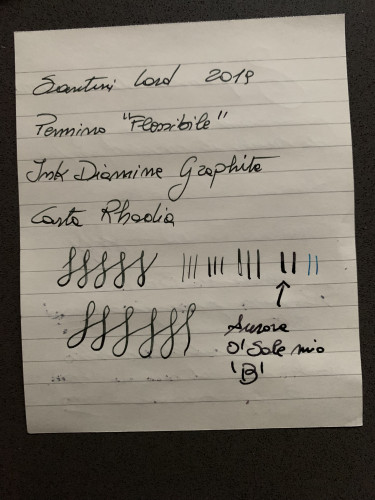 Santini Lord 2019
Pennino "Flessibile"
Ink Diamine Graphite
Carta Rhodia
Aurora
O'Sole mio
'B'